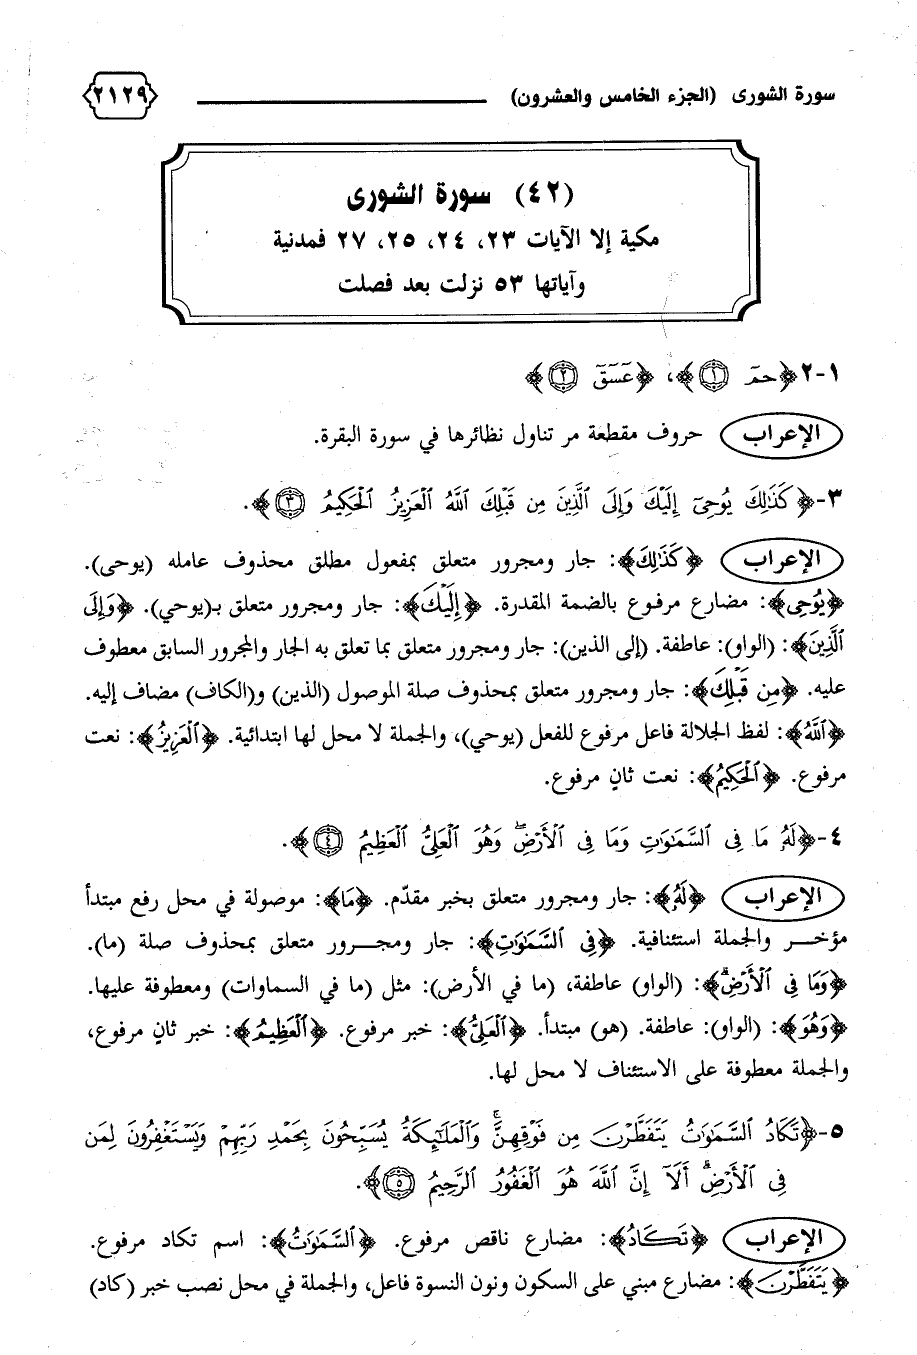 سورة الشورى (الجزء الخامس والعشرون) ٢١٢٩
(٤٢) سورة الشورى
مكية إلا الآيات ٢٣، ٢٤، ٢٥، ٢٧ فمدنية
وآياتها ٥٣ نزلت بعد فصلت
١-٢ ﴿حمٓ ١﴾، ﴿عٓسٓقٓ ٢﴾
الإعراب حروف مقطعة مر تناول نظائرها في سورة البقرة.
٣- ﴿كَذَٰلِكَ يُوحِىٓ إِلَيْكَ وَإِلَى ٱلَّذِينَ مِن قَبْلِكَ ٱللَّهُ ٱلْعَزِيزُ ٱلْحَكِيمُ ٣﴾.
الإعراب ﴿كَذَٰلِكَ﴾: جار ومجرور متعلق بمفعول مطلق محذوف عامله (يوحى).
﴿يُوحِى﴾: مضارع مرفوع بالضمة المقدرة. ﴿إِلَيْكَ﴾: جار ومجرور متعلق بـ(يوحي). ﴿وَإِلَى
ٱلَّذِينَ﴾: (الواو): عاطفة. (إلى الذين): جار ومجرور متعلق بما تعلق به الجار والمجرور السابق معطوف
عليه. ﴿مِن قَبْلِكَ﴾: جار ومجرور متعلق بمحذوف صلة الموصول (الذين) و(الكاف) مضاف إليه.
﴿ٱللَّهُ﴾: لفظ الجلالة فاعل مرفوع للفعل (يوحي)، والجملة لا محل لها ابتدائية. ﴿ٱلْعَزِيزُ﴾: نعت
مرفوع. ﴿ٱلْحَكِيمُ﴾: نعت ثانٍ مرفوع.
٤- ﴿لَهُۥ مَا فِى ٱلسَّمَٰوَٰتِ وَمَا فِى ٱلْأَرْضِۖ وَهُوَ ٱلْعَلِىُّ ٱلْعَظِيمُ ٤﴾.
الإعراب ﴿لَهُۥ﴾: جار ومجرور متعلق بخبر مقدّم. ﴿مَا﴾: موصولة في محل رفع مبتدأ
مؤخـــر والجملة استئنافية. ﴿فِى ٱلسَّمَٰوَٰتِ﴾: جار ومجـــرور متعلق بمحذوف صلة (ما).
﴿وَمَا فِى ٱلْأَرْضِۗ﴾: (الواو) عاطفة، (ما في الأرض): مثل (ما في السماوات) ومعطوفة عليها.
﴿وَهُوَ﴾: (الواو): عاطفة. (هو) مبتدأ. ﴿ٱلْعَلِىُّ﴾: خبر مرفوع. ﴿ٱلْعَظِيمُ﴾: خبر ثانٍ مرفوع،
والجملة معطوفة على الاستئناف لا محل لها.
٥- ﴿تَكَادُ ٱلسَّمَٰوَٰتُ يَتَفَطَّرْنَ مِن فَوْقِهِنَّۚ وَٱلْمَلَٰٓئِكَةُ يُسَبِّحُونَ بِحَمْدِ رَبِّهِمْ وَيَسْتَغْفِرُونَ لِمَن
فِى ٱلْأَرْضِۗ أَلَآ إِنَّ ٱللَّهَ هُوَ ٱلْغَفُورُ ٱلرَّحِيمُ ٥﴾.
الإعراب ﴿تَكَادُ﴾: مضارع ناقص مرفوع. ﴿ٱلسَّمَٰوَٰتُ﴾: اسم تكاد مرفوع.
﴿يَتَفَطَّرْنَ﴾: مضارع مبني على السكون ونون النسوة فاعل، والجملة في محل نصب خبر (كاد)